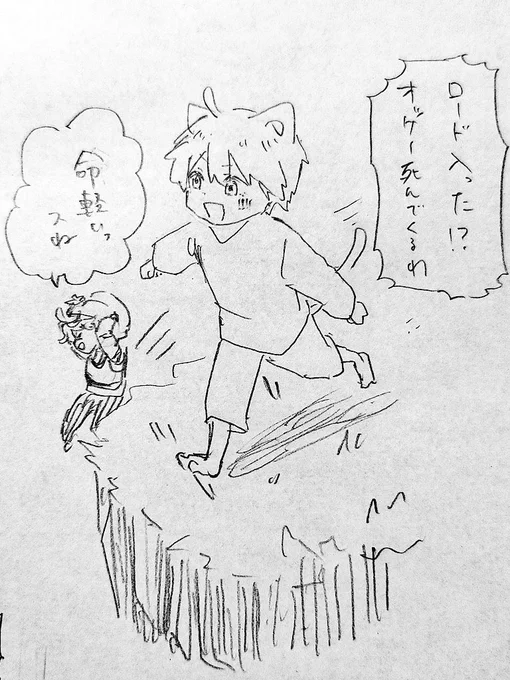 ロード入った!?
オッケー死んでくるわ
命軽いっ
スね